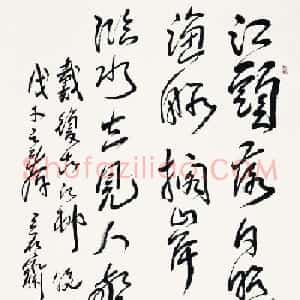 江頭落日照
漁船擱岸
臨水立見人驚
戴復古江村晚
Shufaziliao.COM